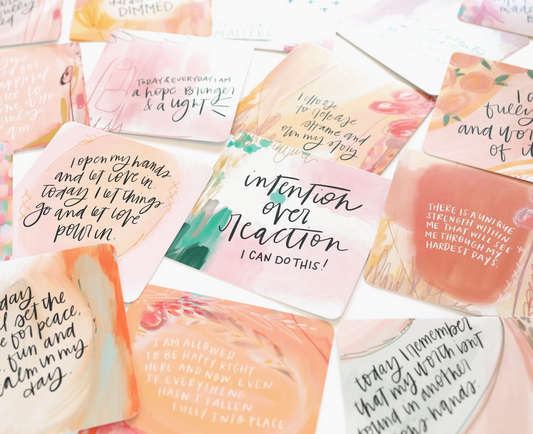 DIMMED
MATTERS
TODAY & EVERYDAY I AM
a hope bringer
& a light
I choose
to release
shame and
own my story.
I a
fully
and wor
of
I open my hands
and let love in.
today I let things
go and let love
pour in.
intention
over
reaction
I CAN DO THIS!
THERE IS A UNIQUE
STRENGTH WITHIN
ME THAT WILL SEE
ME THROUGH MY
HARDEST DAYS.
day
set the
for peace,
fun and
calm in my
day.
I AM ALLOWED
TO BE HAPPY RIGHT
HERE AND NOW, EVEN
IF EVERYTHING
HASN'T FALLEN
FULLY INTO PLACE.
today I remember
that my worth isn't
found in another
ons hands.